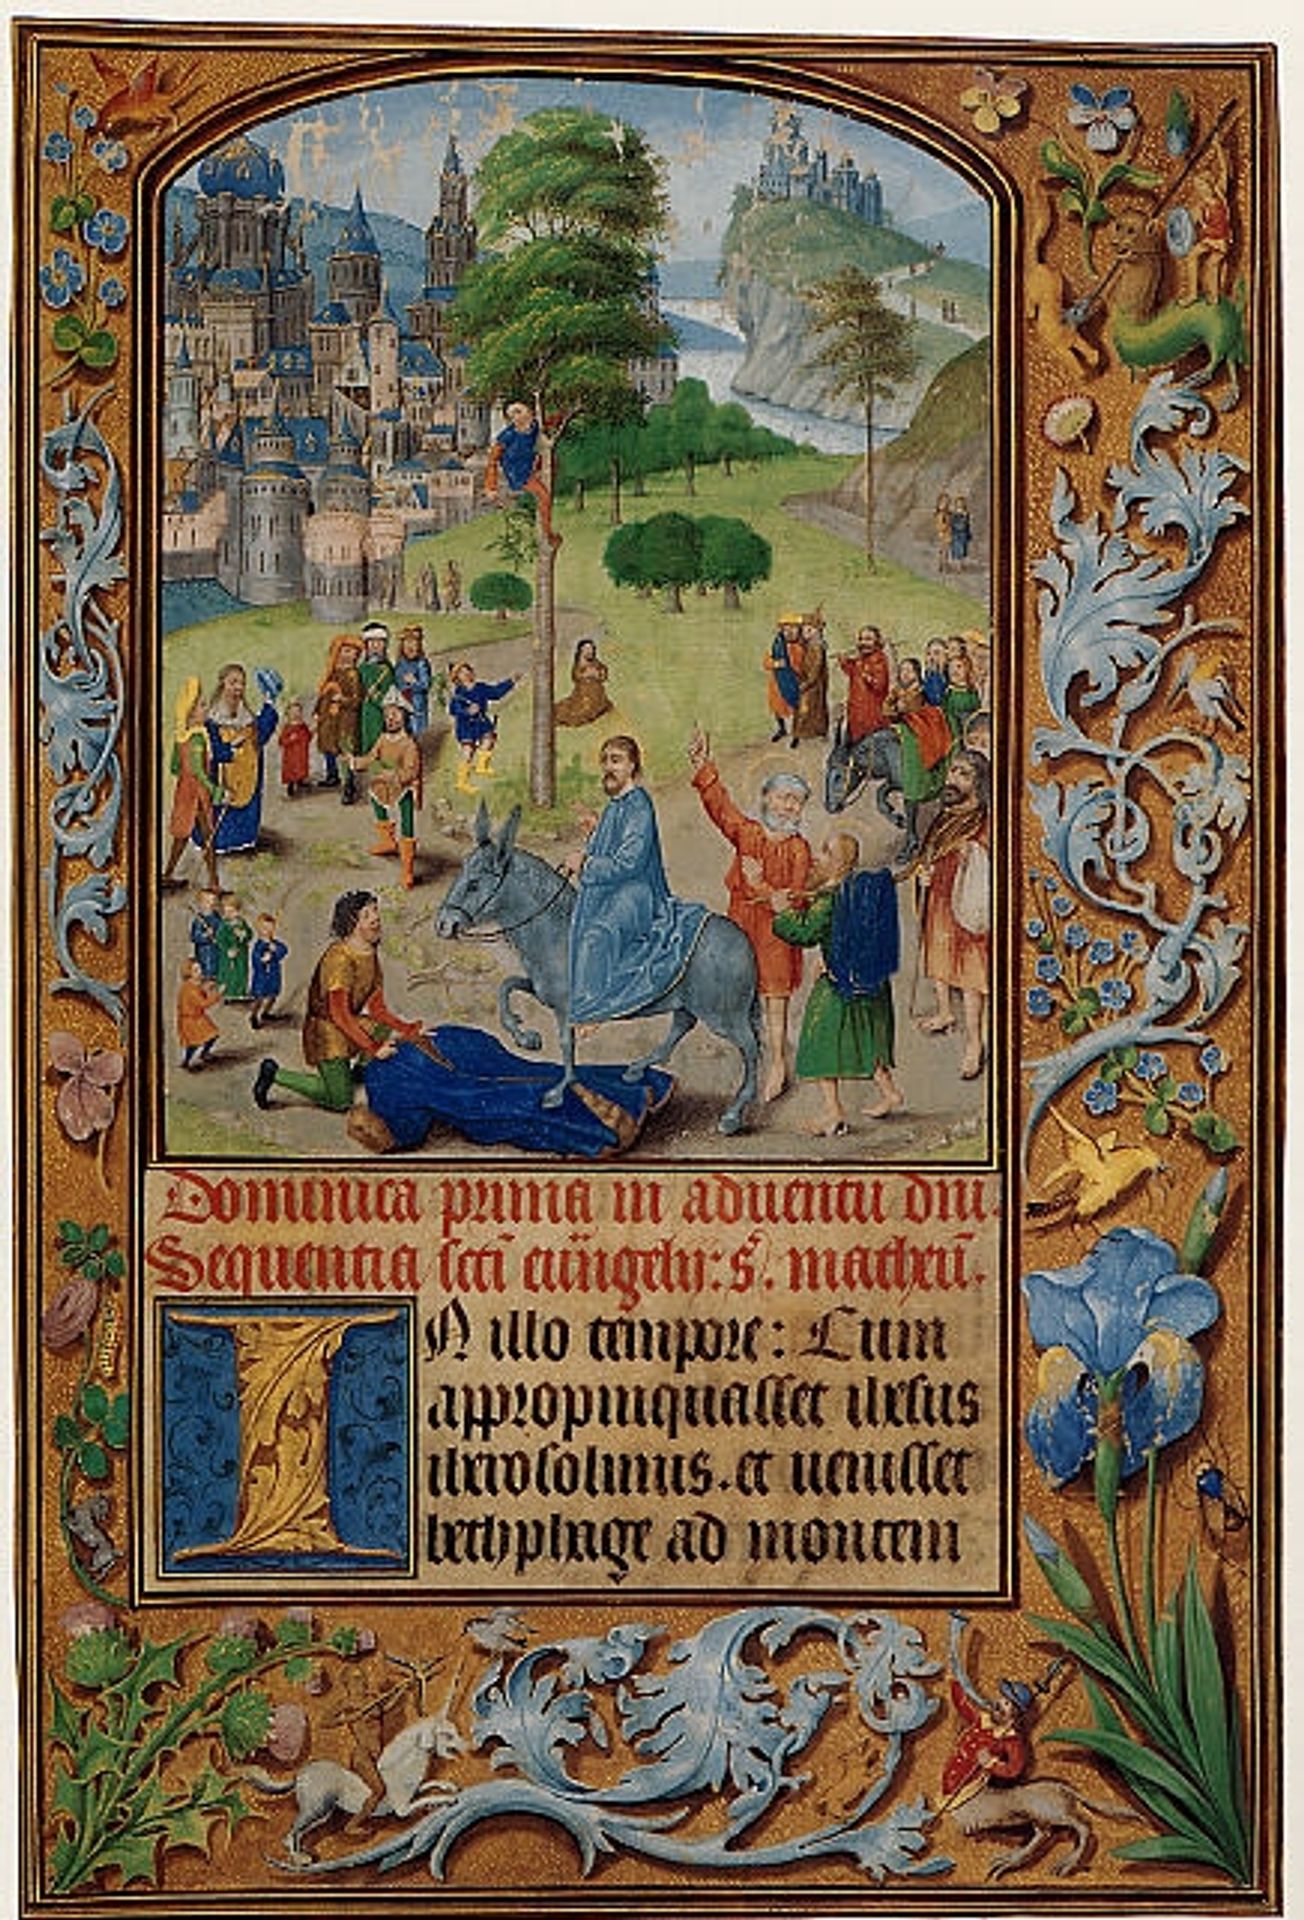 Dominica prima in aduentu dni.
Sequentia scti euangelij: s. matheu.
IN illo tempore: Cum
appropinquasset ihesus
iherosolimis. et uenisset
bethphage ad montem